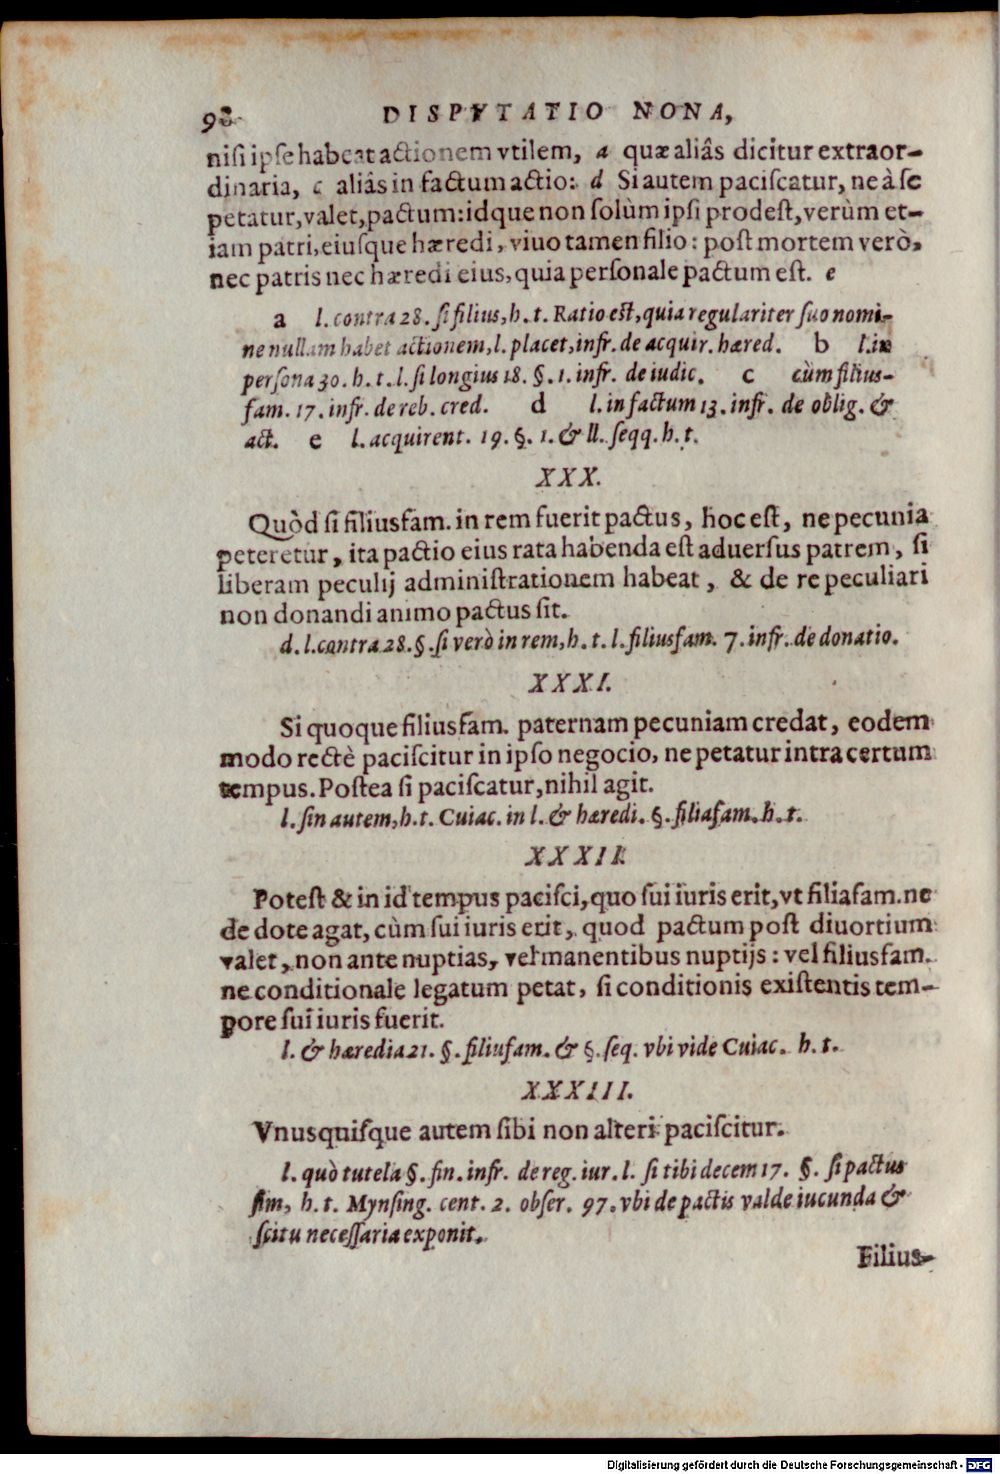 98 DISPVTATIO NONA,
nisi ipse habeat actionem vtilem, a quæ aliâs dicitur extraor-
dinaria, c aliâs in factum actio: d Si autem paciscatur, ne à se
petatur, valet, pactum: idque non solùm ipsi prodest, verùm et-
iam patri, eiusque hæredi, viuo tamen filio: post mortem verò,
nec patris nec hæredi eius, quia personale pactum est. e
a l. contra 28. si filius, h. t. Ratio est, quia regulariter suo nomi-
ne nullam habet actionem, l. placet, infr. de acquir. hæred. b l. in
persona 30. h. t. l. si longius 18. §. 1. infr. de iudic. c cùm filius-
fam. 17. infr. de reb. cred. d l. in factum 13. infr. de oblig. &
act. e l. acquirent. 19. §. 1. & ll. seqq. h. t.
XXX.
Quòd si filiusfam. in rem fuerit pactus, hoc est, ne pecunia
peteretur, ita pactio eius rata habenda est aduersus patrem, si
liberam peculij administrationem habeat, & de re peculiari
non donandi animo pactus sit.
d. l. contra 28. §. si verò in rem, h. t. l. filiusfam. 7. infr. de donatio.
XXXI.
Si quoque filiusfam. paternam pecuniam credat, eodem
modo rectè paciscitur in ipso negocio, ne petatur intra certum
tempus. Postea si paciscatur, nihil agit.
l. sin autem, h. t. Cuiac. in l. & hæredi. §. filiafam. h. t.
XXXII.
Potest & in id tempus pacisci, quo sui iuris erit, vt filiafam. ne
de dote agat, cùm sui iuris erit, quod pactum post diuortium
valet, non ante nuptias, vel manentibus nuptijs: vel filiusfam.
ne conditionale legatum petat, si conditionis existentis tem-
pore sui iuris fuerit.
l. & hæredi a 21. §. filiufam. & §. seq. vbi vide Cuiac. h. t.
XXXIII.
Vnusquisque autem sibi non alteri paciscitur.
l. quò tutela §. fin. infr. de reg. iur. l. si tibi decem 17. §. si pactus
sim, h. t. Mynsing. cent. 2. obser. 97. vbi de pactis valde iucunda &
scitu necessaria exponit.
Filius-
Digitalisierung gefördert durch die Deutsche Forschungsgemeinschaft - DFG